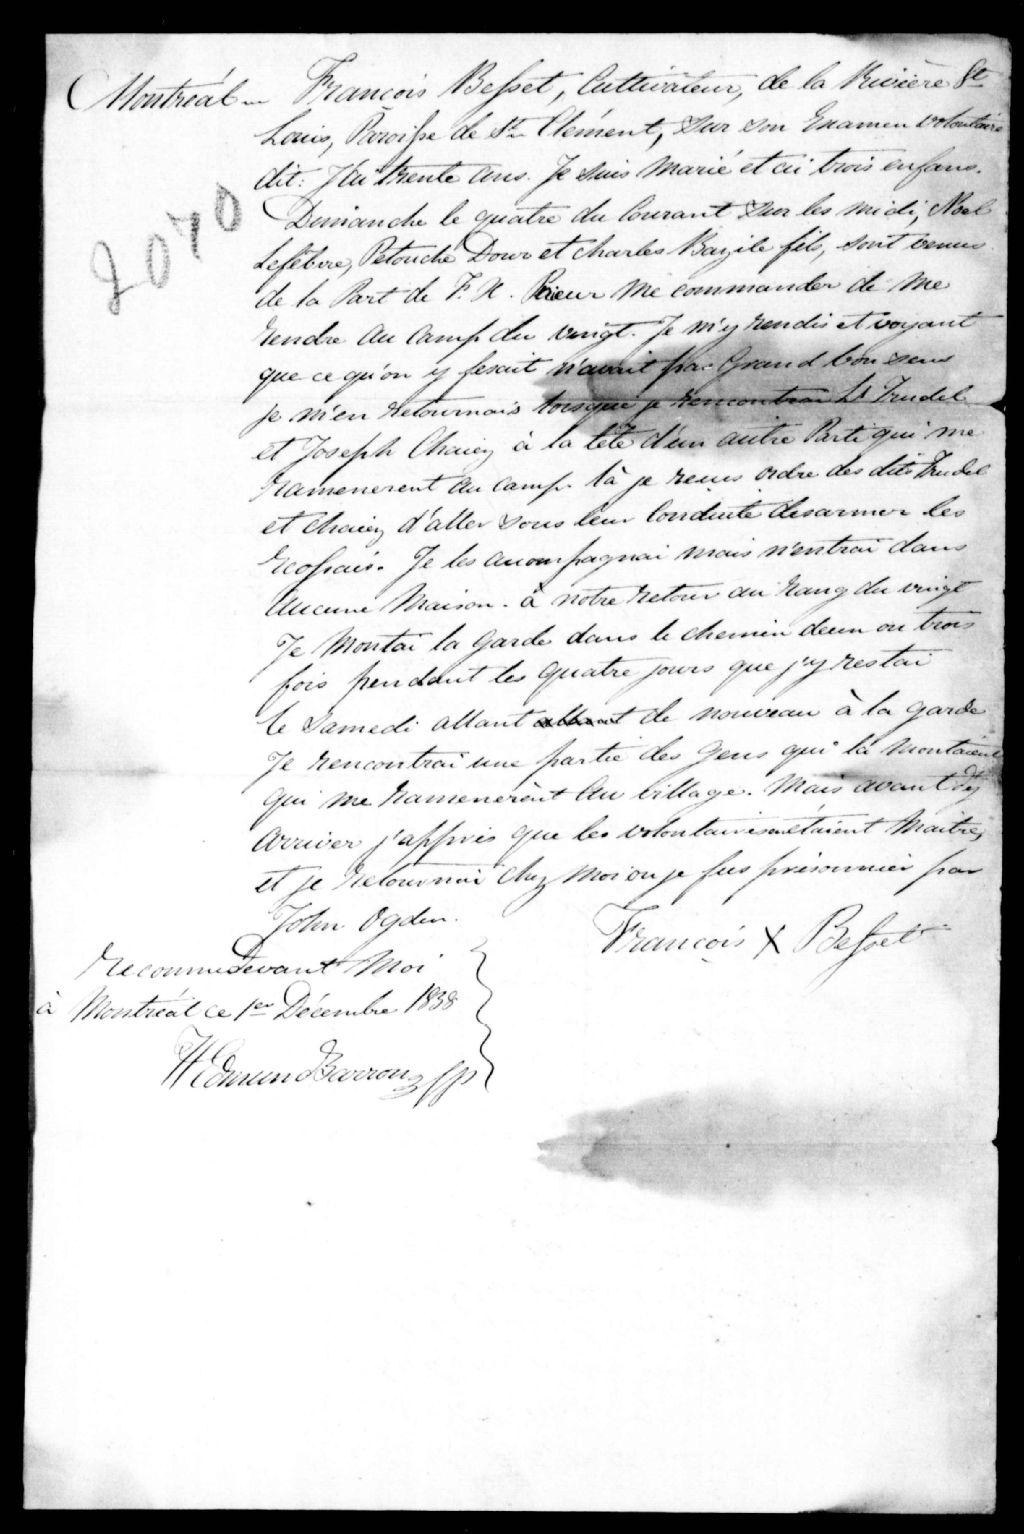 Montréal — François Besset, Cultivateur, de la Rivière St
Louis, Paroisse de St. Clément, sur son Examen volontaire
dit: J'ai trente ans. Je suis marié et ai trois enfans.
2070
Dimanche le quatre du Courant sur les midi, Noel
Lefebvre, Petouche Dour et Charles Bazile fils, sont venus
de la Part de F. X. Prieur me commander de me
rendre au camp du vingt. Je m'y rendis et voyant
que ce qu'on y fesait n'avait pas Grand bon sens
je m'en retournais lorsque je rencontrai Ls Trudel
et Joseph Chaiez à la tête d'un autre Parti qui me
ramenerent au camp. là je reçus ordre des dits Trudel
et Chaiez d'aller sous leur Conduite desarmer les
Ecossais. Je les accompagnai mais n'entrai dans
Aucune Maison. à notre retour au rang du vingt
Je Montai la Garde dans le chemin deux ou trois
fois pendant les quatre jours que j'y restai
le Samedi allant de nouveau à la garde
Je rencontrai une partie des Gens qui la Montaient
qui me ramenerent Au village. Mais avant d'y
Arriver j'appris que les volontaires étaient Maitres,
et je retournai Chez Moi où je fus prisonnier par
John Ogden.
François X Besset
Reconnu devant Moi
à Montréal ce 1er Décembre 1838
H Edmund Barron JP